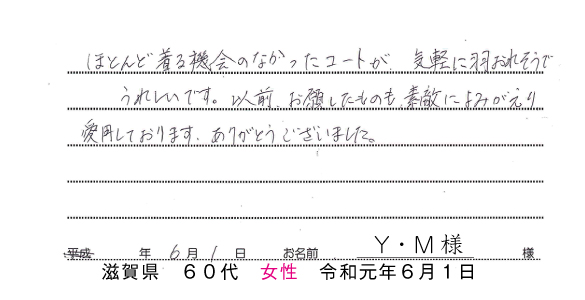 ほとんど着る機会のなかったコートが、気軽に羽おれそうで
うれしいです。以前、お願したものも、素敵によみがえり
愛用しております。ありがとうございました。
平成 年 6月 1 日 お名前 Y・M様 様
滋賀県 60代 女性 令和元年6月1日